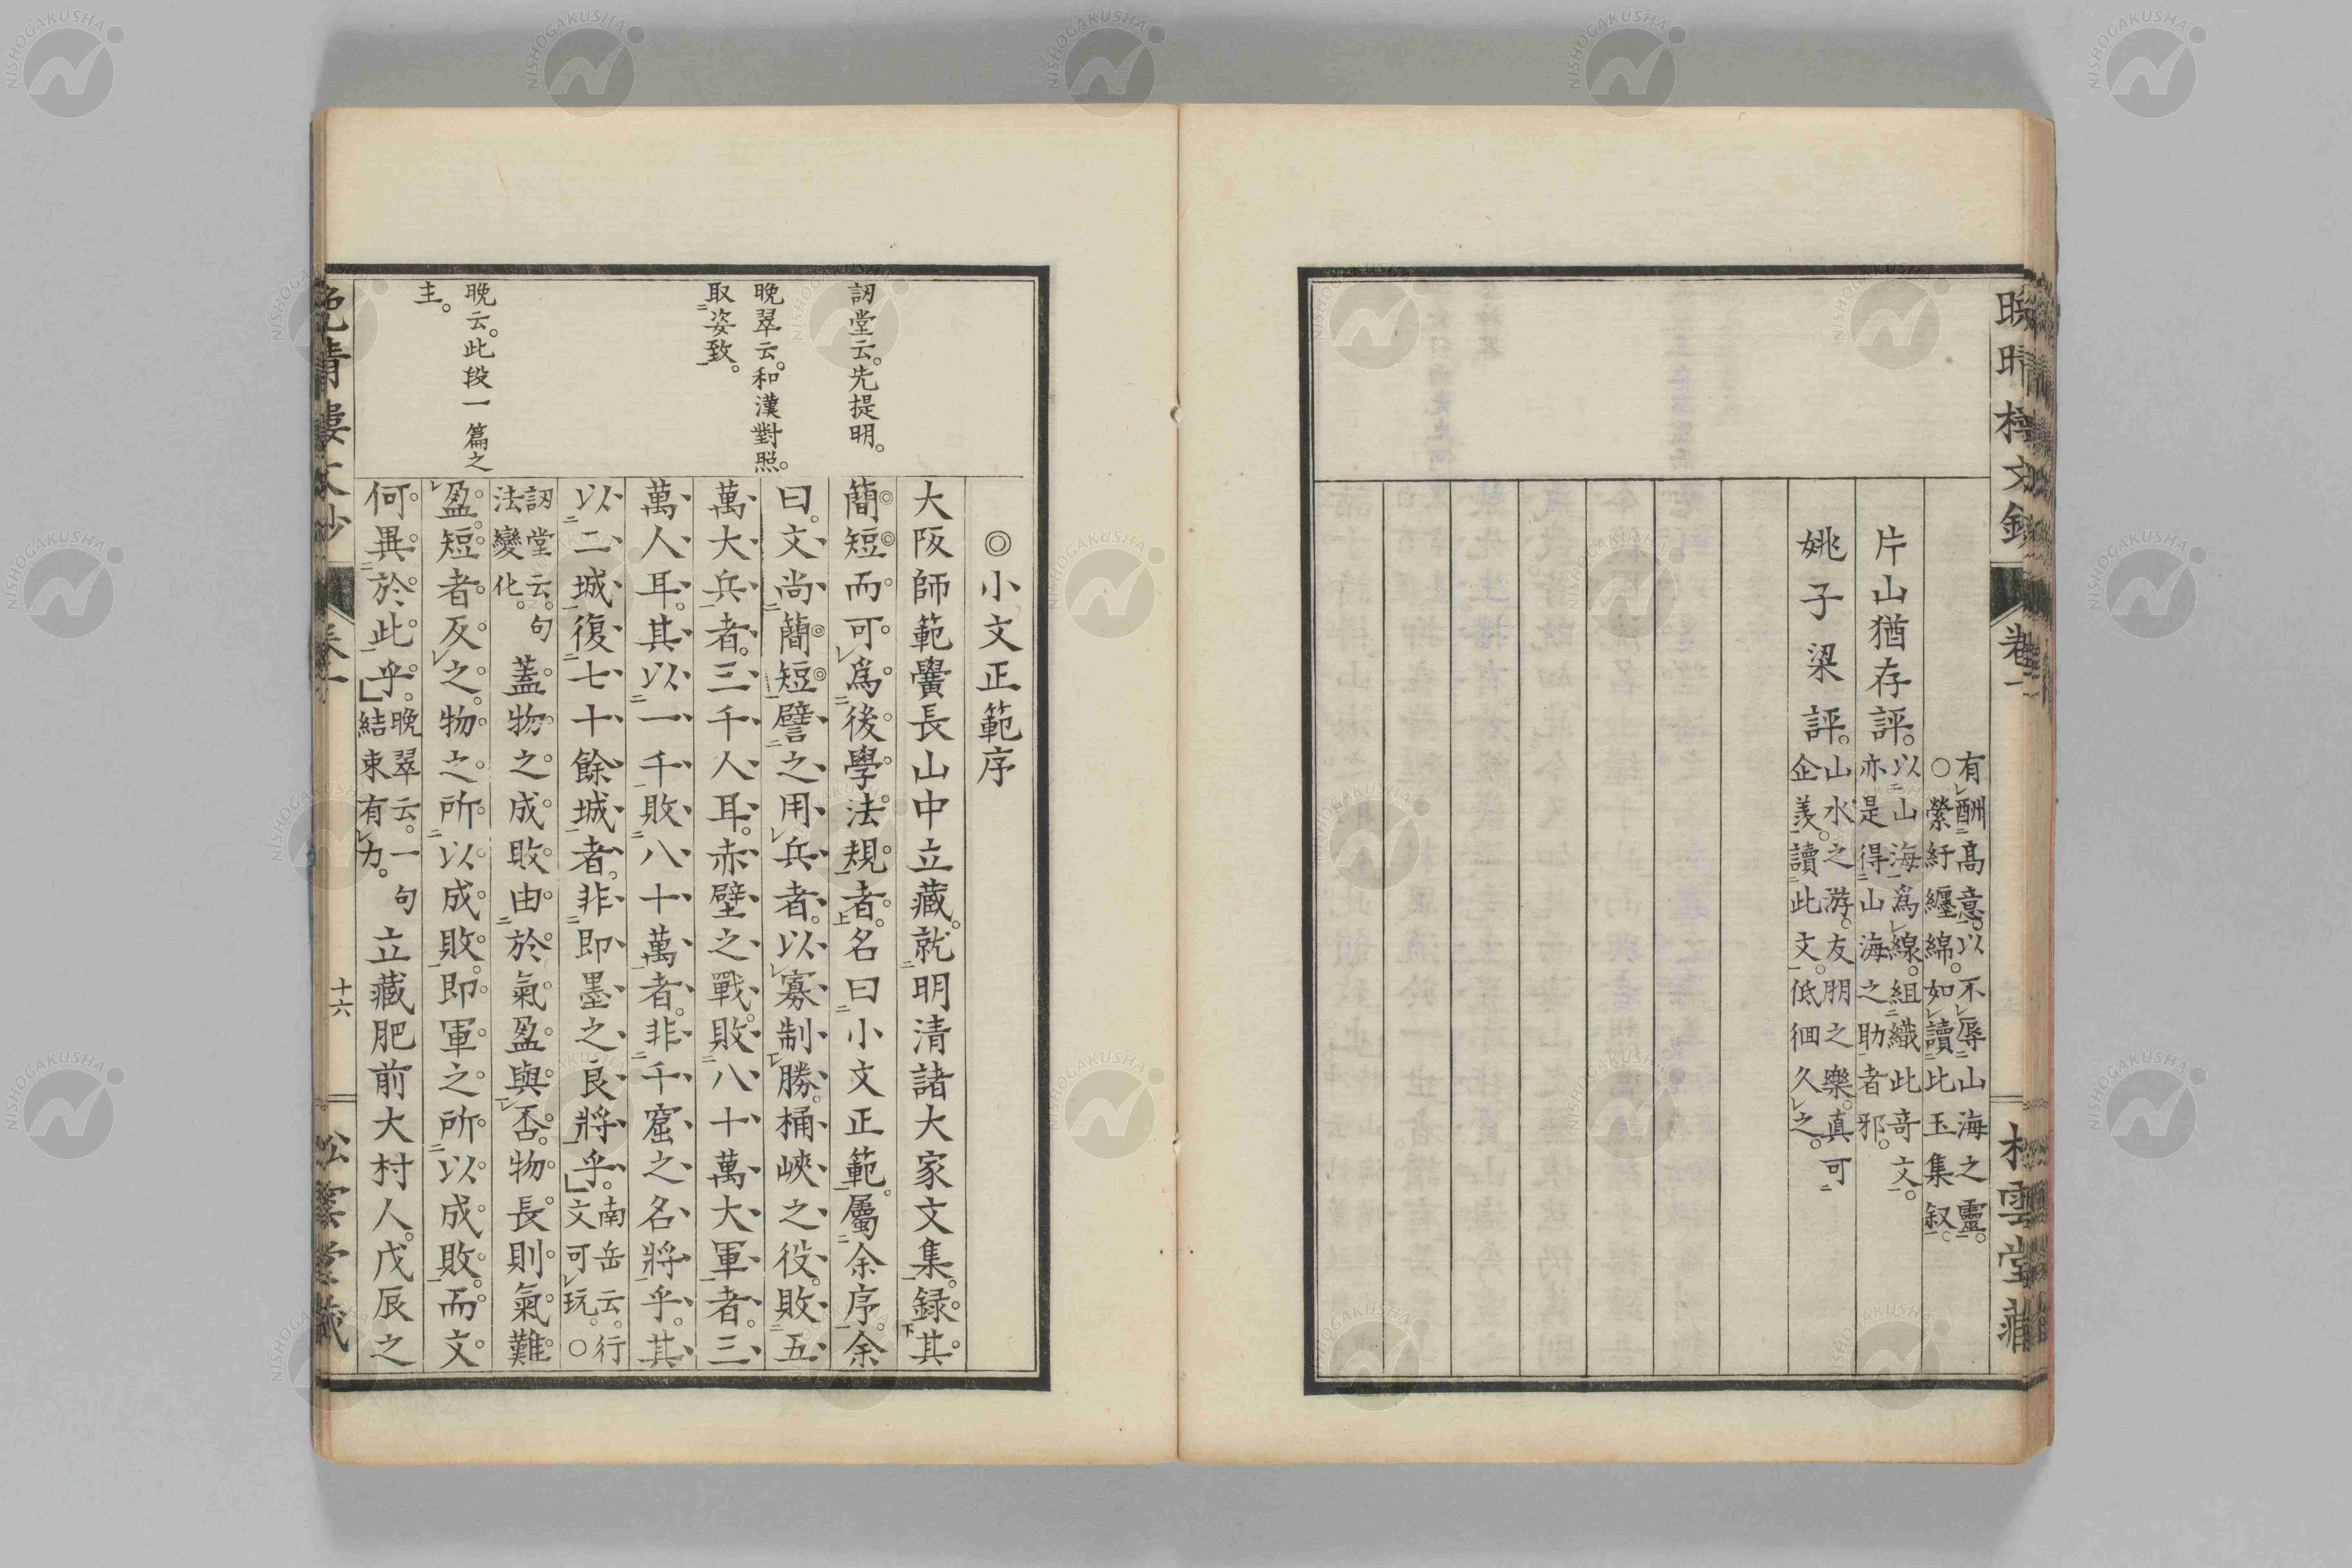 有酬高意。以不辱山海之靈。
○縈紆纏綿。如讀比玉集叙。
片山猶存評。以山海爲線。組織此奇文。
亦是得山海之助者邪。
姚子梁評。山水之游。友朋之樂。真可
企羨。讀此文。低徊久之。
卷一
◎小文正範序
大阪師範黌長山中立藏。就明清諸大家文集。録其
簡短而可爲後學法規者。名曰小文正範。屬余序。余
曰。文尚簡短。譬之用兵者。以寡制勝。桶峽之役。敗五
萬大兵者。三千人耳。赤壁之戰。敗八十萬大軍者。三
萬人耳。其以一千敗八十萬者。非千窟之名將乎。其
以二城復七十餘城者。非即墨之良將乎。」南岳云。行
文可玩。○
訒堂云。句
法變化。
蓋物之成敗由於氣盈與否。物長則氣難
盈。短者反之。物之所以成敗。即軍之所以成敗。而文
何異於此乎。」晚翠云。一句
結束有力。
立藏肥前大村人。戊辰之
訒堂云。先提明。
晚翠云。和漢對照。
取姿致。
晚云。此段一篇之
主。
十六
NISHOGAKUSHA